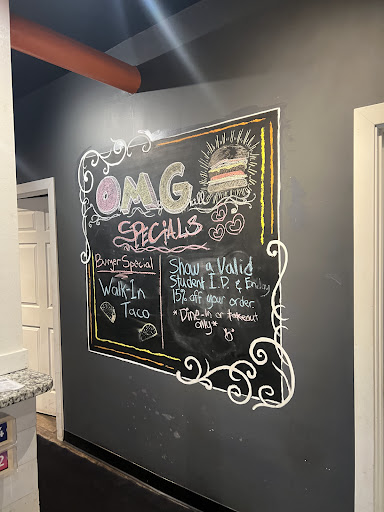 O.M.G
SPECIALS
Burger Special
Walk-In
Taco
Show a Valid
Student I.D. & Enjoy
15% off your order
*Dine-In or takeout
only*